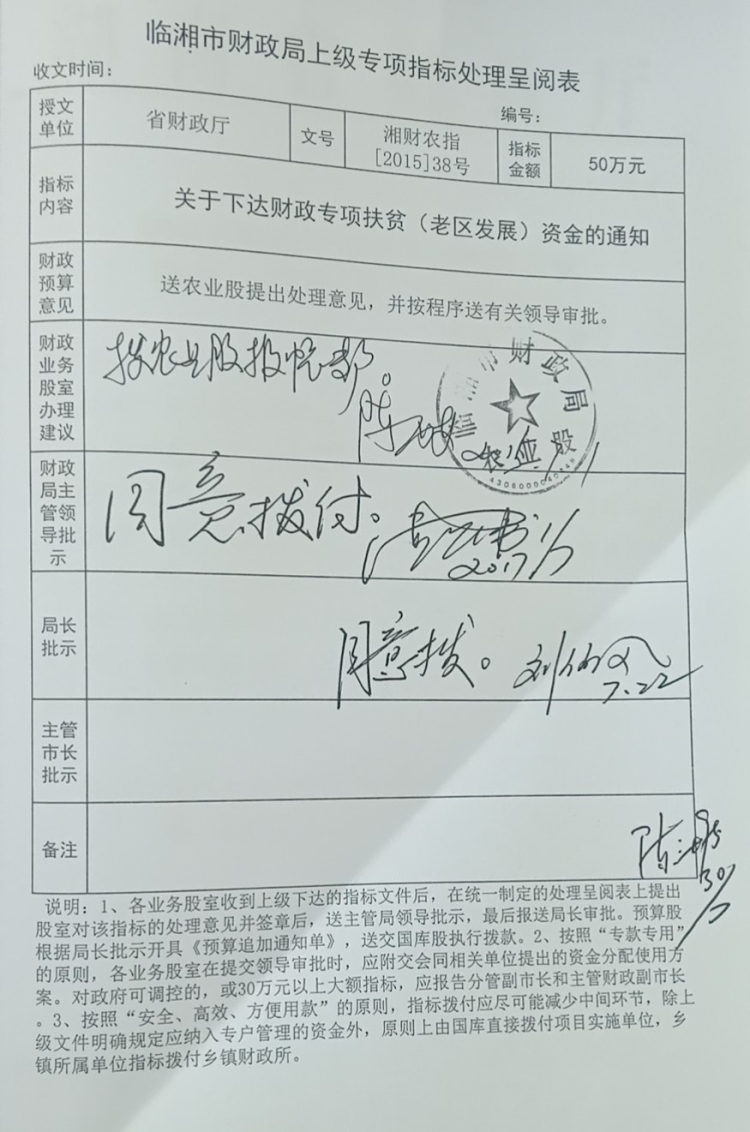 临湘市财政局上级专项指标处理呈阅表
收文时间：
编号：
授文单位 省财政厅 文号 湘财农指[2015]38号 指标金额 50万元
指标内容 关于下达财政专项扶贫（老区发展）资金的通知
财政预算意见 送农业股提出处理意见，并按程序送有关领导审批。
财政业务股室办理建议
财政局
农业股
财政局主管领导批示 同意拨付。
局长批示 同意拨。 7.22
主管市长批示
备注
说明：1、各业务股室收到上级下达的指标文件后，在统一制定的处理呈阅表上提出
股室对该指标的处理意见并签章后，送主管局领导批示，最后报送局长审批。预算股
根据局长批示开具《预算追加通知单》，送交国库股执行拨款。2、按照“专款专用”
的原则，各业务股室在提交领导审批时，应附交会同相关单位提出的资金分配使用方
案。对政府可调控的，或30万元以上大额指标，应报告分管副市长和主管财政副市长
。3、按照“安全、高效、方便用款”的原则，指标拨付应尽可能减少中间环节，除上
级文件明确规定应纳入专户管理的资金外，原则上由国库直接拨付项目实施单位，乡
镇所属单位指标拨付乡镇财政所。